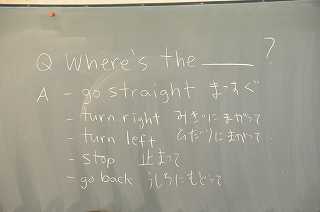 Q Where's the ____?
A - go straight まっすぐ
- turn right みぎにまがって
- turn left ひだりにまがって
- stop 止まって
- go back うしろにもどって